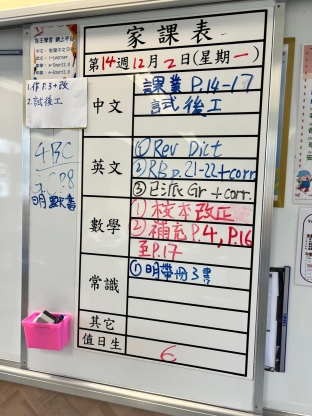 自主學習 網上平台
1.作 P.3+改
2.試後工
4BC
P8
明
家課表
第14週12月2日(星期一)
中文
課業 P.14-17
試後工
英文
① Rev Dict
② RB p.21-22 + corr
③ 已派 Gr + corr.
數學
① 校本改正
② 補充 P.4, P.16
至 P.17
常識
① 明帶冊3
其它
值日生
6